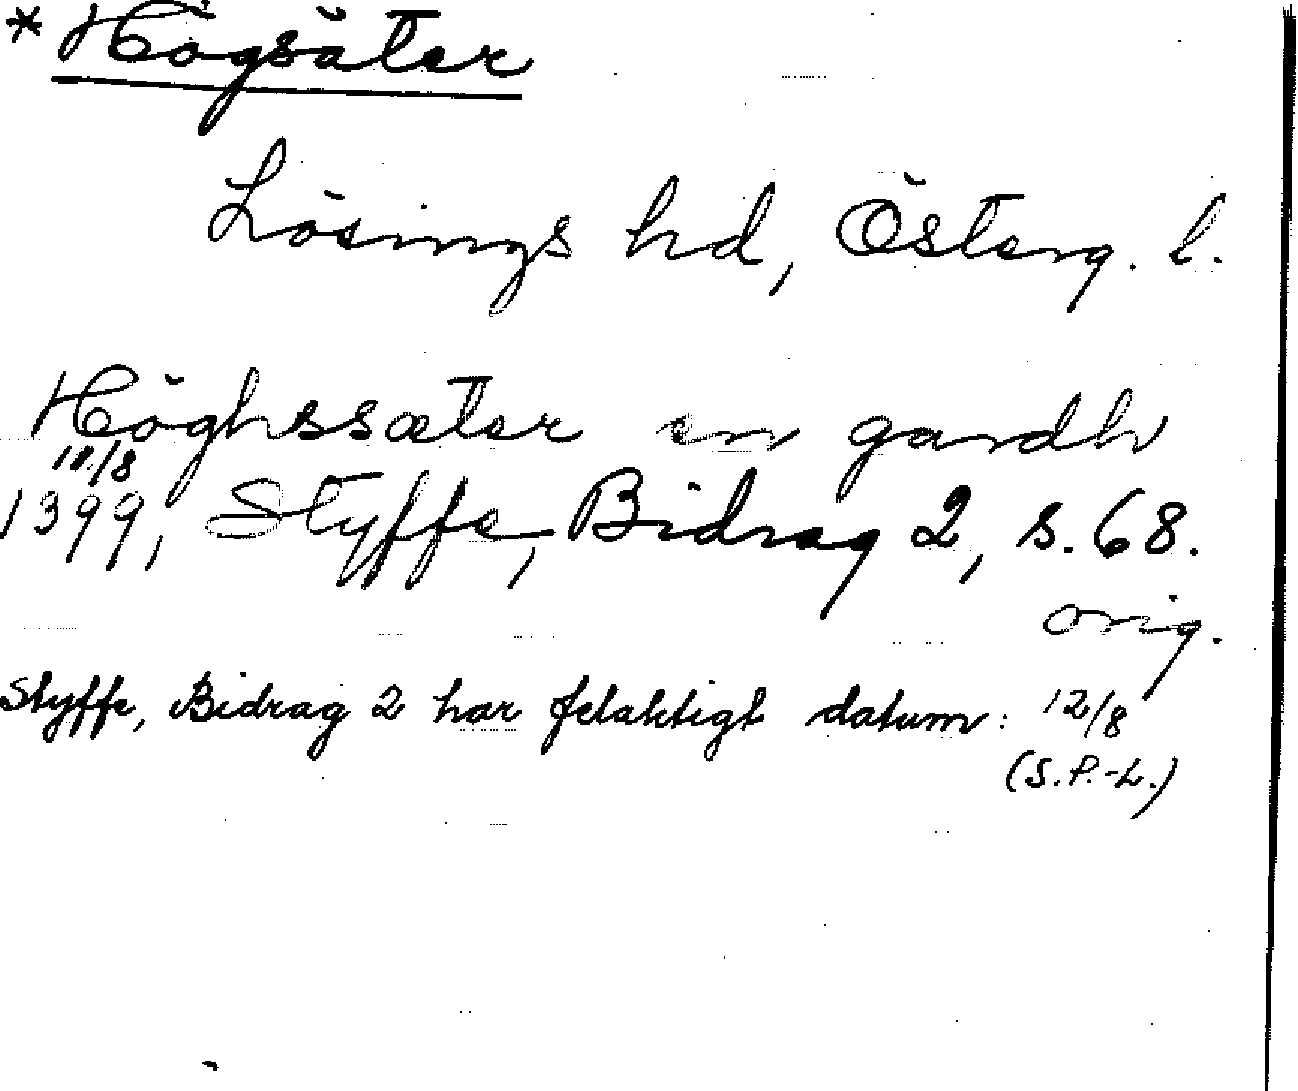 * Högsäter
Lösings hd, Österg. l.
Höghssæter en gardh
1399, Styffe, Bidrag 2, s. 68.
orig.
Styffe, Bidrag 2 har felaktigt datum: 12/8
(S.P.-L.)